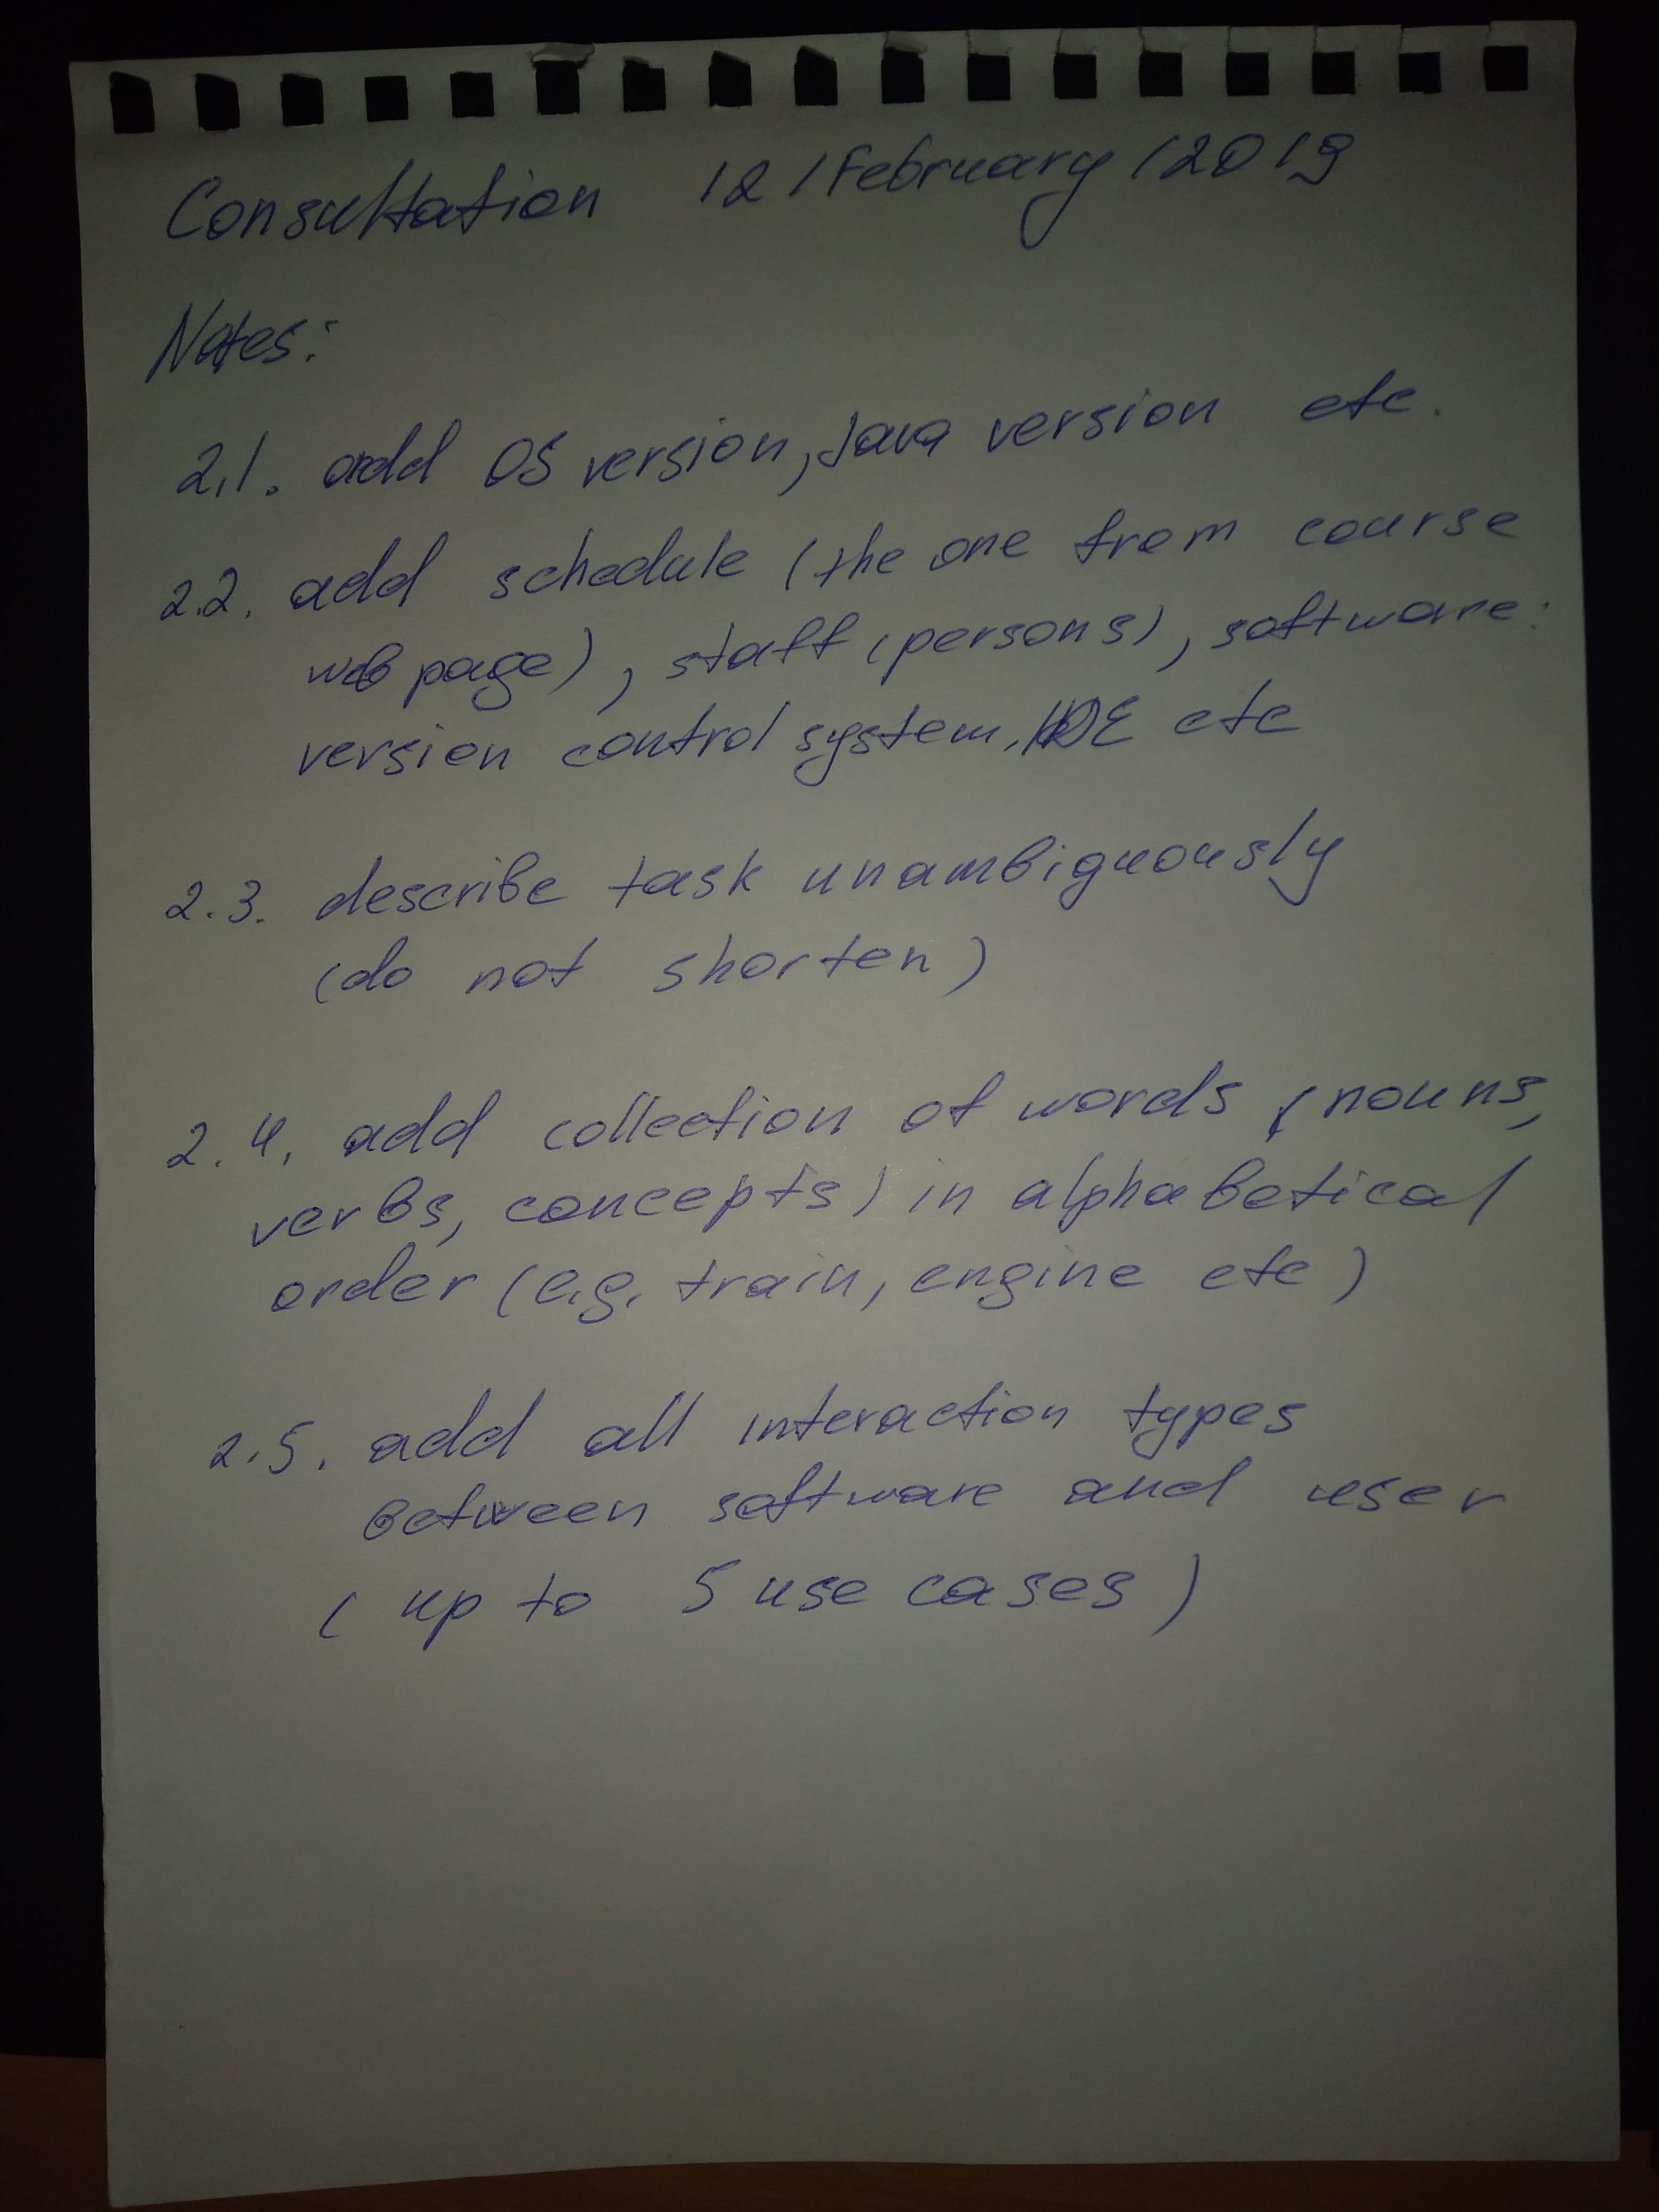 Consultation 12/February/2019
Notes:
2.1. add OS version, Java version etc.
2.2. add schedule (the one from course
web page), staff (persons), software:
version control system, IDE etc
2.3. describe task unambiguously
(do not shorten)
2.4. add collection of words (nouns,
verbs, concepts) in alphabetical
order (e.g. train, engine etc)
2.5. add all interaction types
between software and user
(up to 5 use cases)